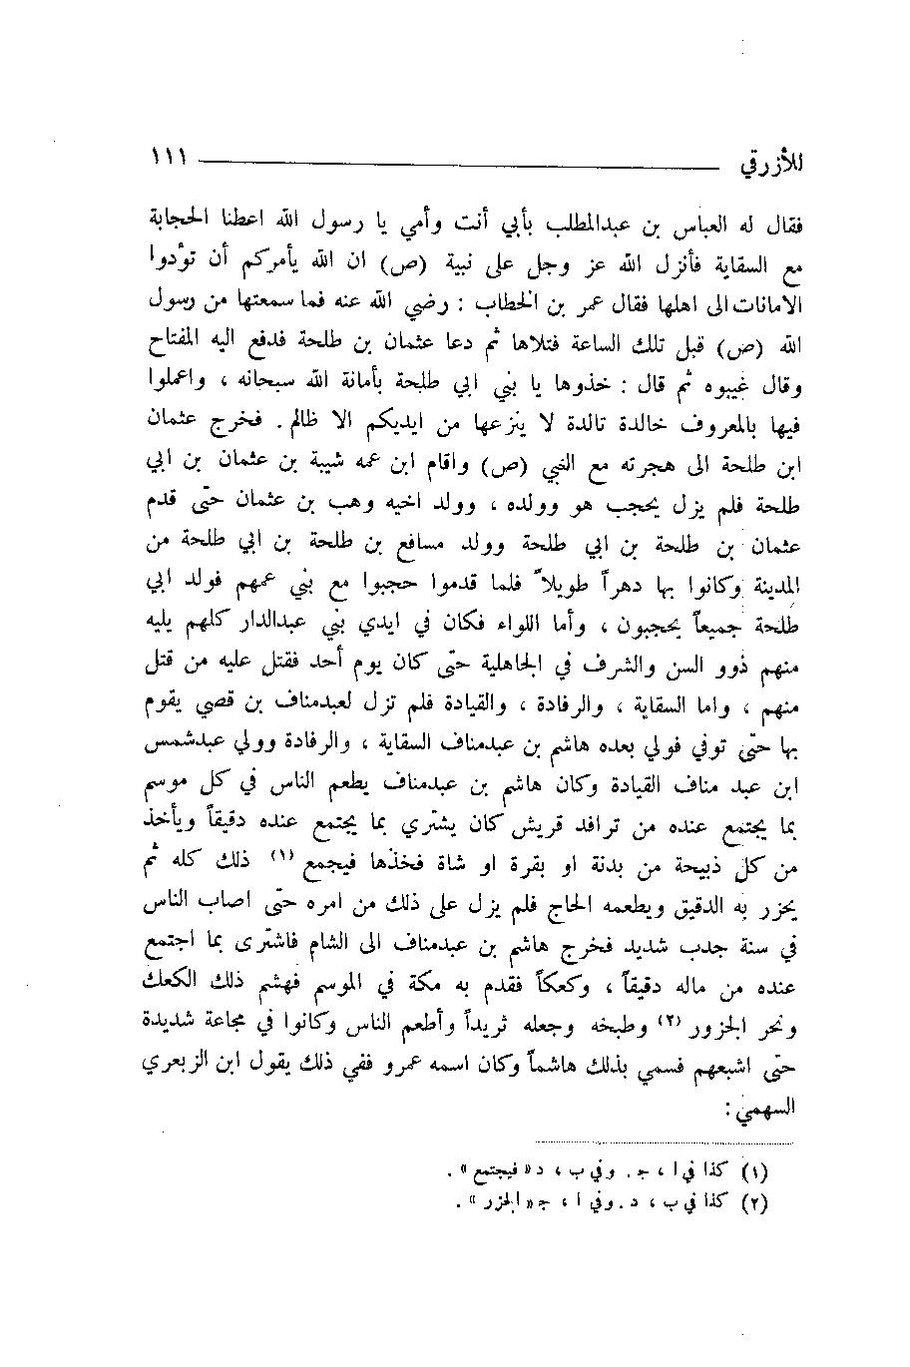 للأزرقي ١١١
فقال له العباس بن عبدالمطلب بأبي أنت وأمي يا رسول الله اعطنا الحجابة
مع السقاية فأنزل الله عز وجل على نبية (ص) ان الله يأمركم أن تؤدوا
الامانات الى اهلها فقال عمر بن الخطاب : رضي الله عنه فما سمعتها من رسول
الله (ص) قبل تلك الساعة فتلاها ثم دعا عثمان بن طلحة فدفع اليه المفتاح
وقال غيبوه ثم قال : خذوها يا بني ابي طلحة بأمانة الله سبحانه ، واعملوا
فيها بالمعروف خالدة تالدة لا ينزعها من ايديكم الا ظالم . فخرج عثمان
ابن طلحة الى هجرته مع النبي (ص) واقام ابن عمه شيبة بن عثمان بن ابي
طلحة فلم يزل يحجب هو وولده ، وولد اخيه وهب بن عثمان حتى قدم
عثمان بن طلحة بن ابي طلحة وولد مسافع بن طلحة بن ابي طلحة من
المدينة وكانوا بها دهراً طويلاً فلما قدموا حجبوا مع بني عمهم فولد ابي
طلحة جميعاً يحجبون ، وأما اللواء فكان في ايدي بني عبدالدار كلهم يليه
منهم ذوو السن والشرف في الجاهلية حتى كان يوم أحد فقتل عليه من قتل
منهم ، واما السقاية ، والرفادة ، والقيادة فلم تزل لعبدمناف بن قصي يقوم
بها حتى توفي فولي بعده هاشم بن عبدمناف السقاية ، والرفادة وولي عبدشمس
ابن عبد مناف القيادة وكان هاشم بن عبدمناف يطعم الناس في كل موسم
بما يجتمع عنده من ترافد قريش كان يشتري بما يجتمع عنده دقيقاً ويأخذ
من كل ذبيحة من بدنة او بقرة او شاة فخذها فيجمع (١) ذلك كله ثم
يحزر به الدقيق ويطعمه الحاج فلم يزل على ذلك من امره حتى اصاب الناس
في سنة جدب شديد فخرج هاشم بن عبدمناف الى الشام فاشترى بما اجتمع
عنده من ماله دقيقاً ، وكعكاً فقدم به مكة في الموسم فهشم ذلك الكعك
ونحر الجزور (٢) وطبخه وجعله ثريداً وأطعم الناس وكانوا في مجاعة شديدة
حتى اشبعهم فسمي بذلك هاشماً وكان اسمه عمرو ففي ذلك يقول ابن الزبعري
السهمي :
(١) كذا في ا ، جـ . وفي ب ، د « فيجتمع » .
(٢) كذا في ب ، د . وفي ا ، جـ « الجزر » .